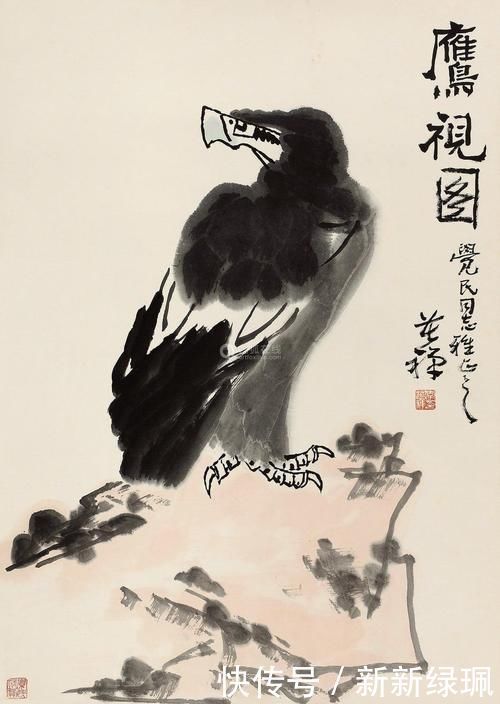 鷹視图
覺民同志雅正之
苦禅
快传号/新新绿珮